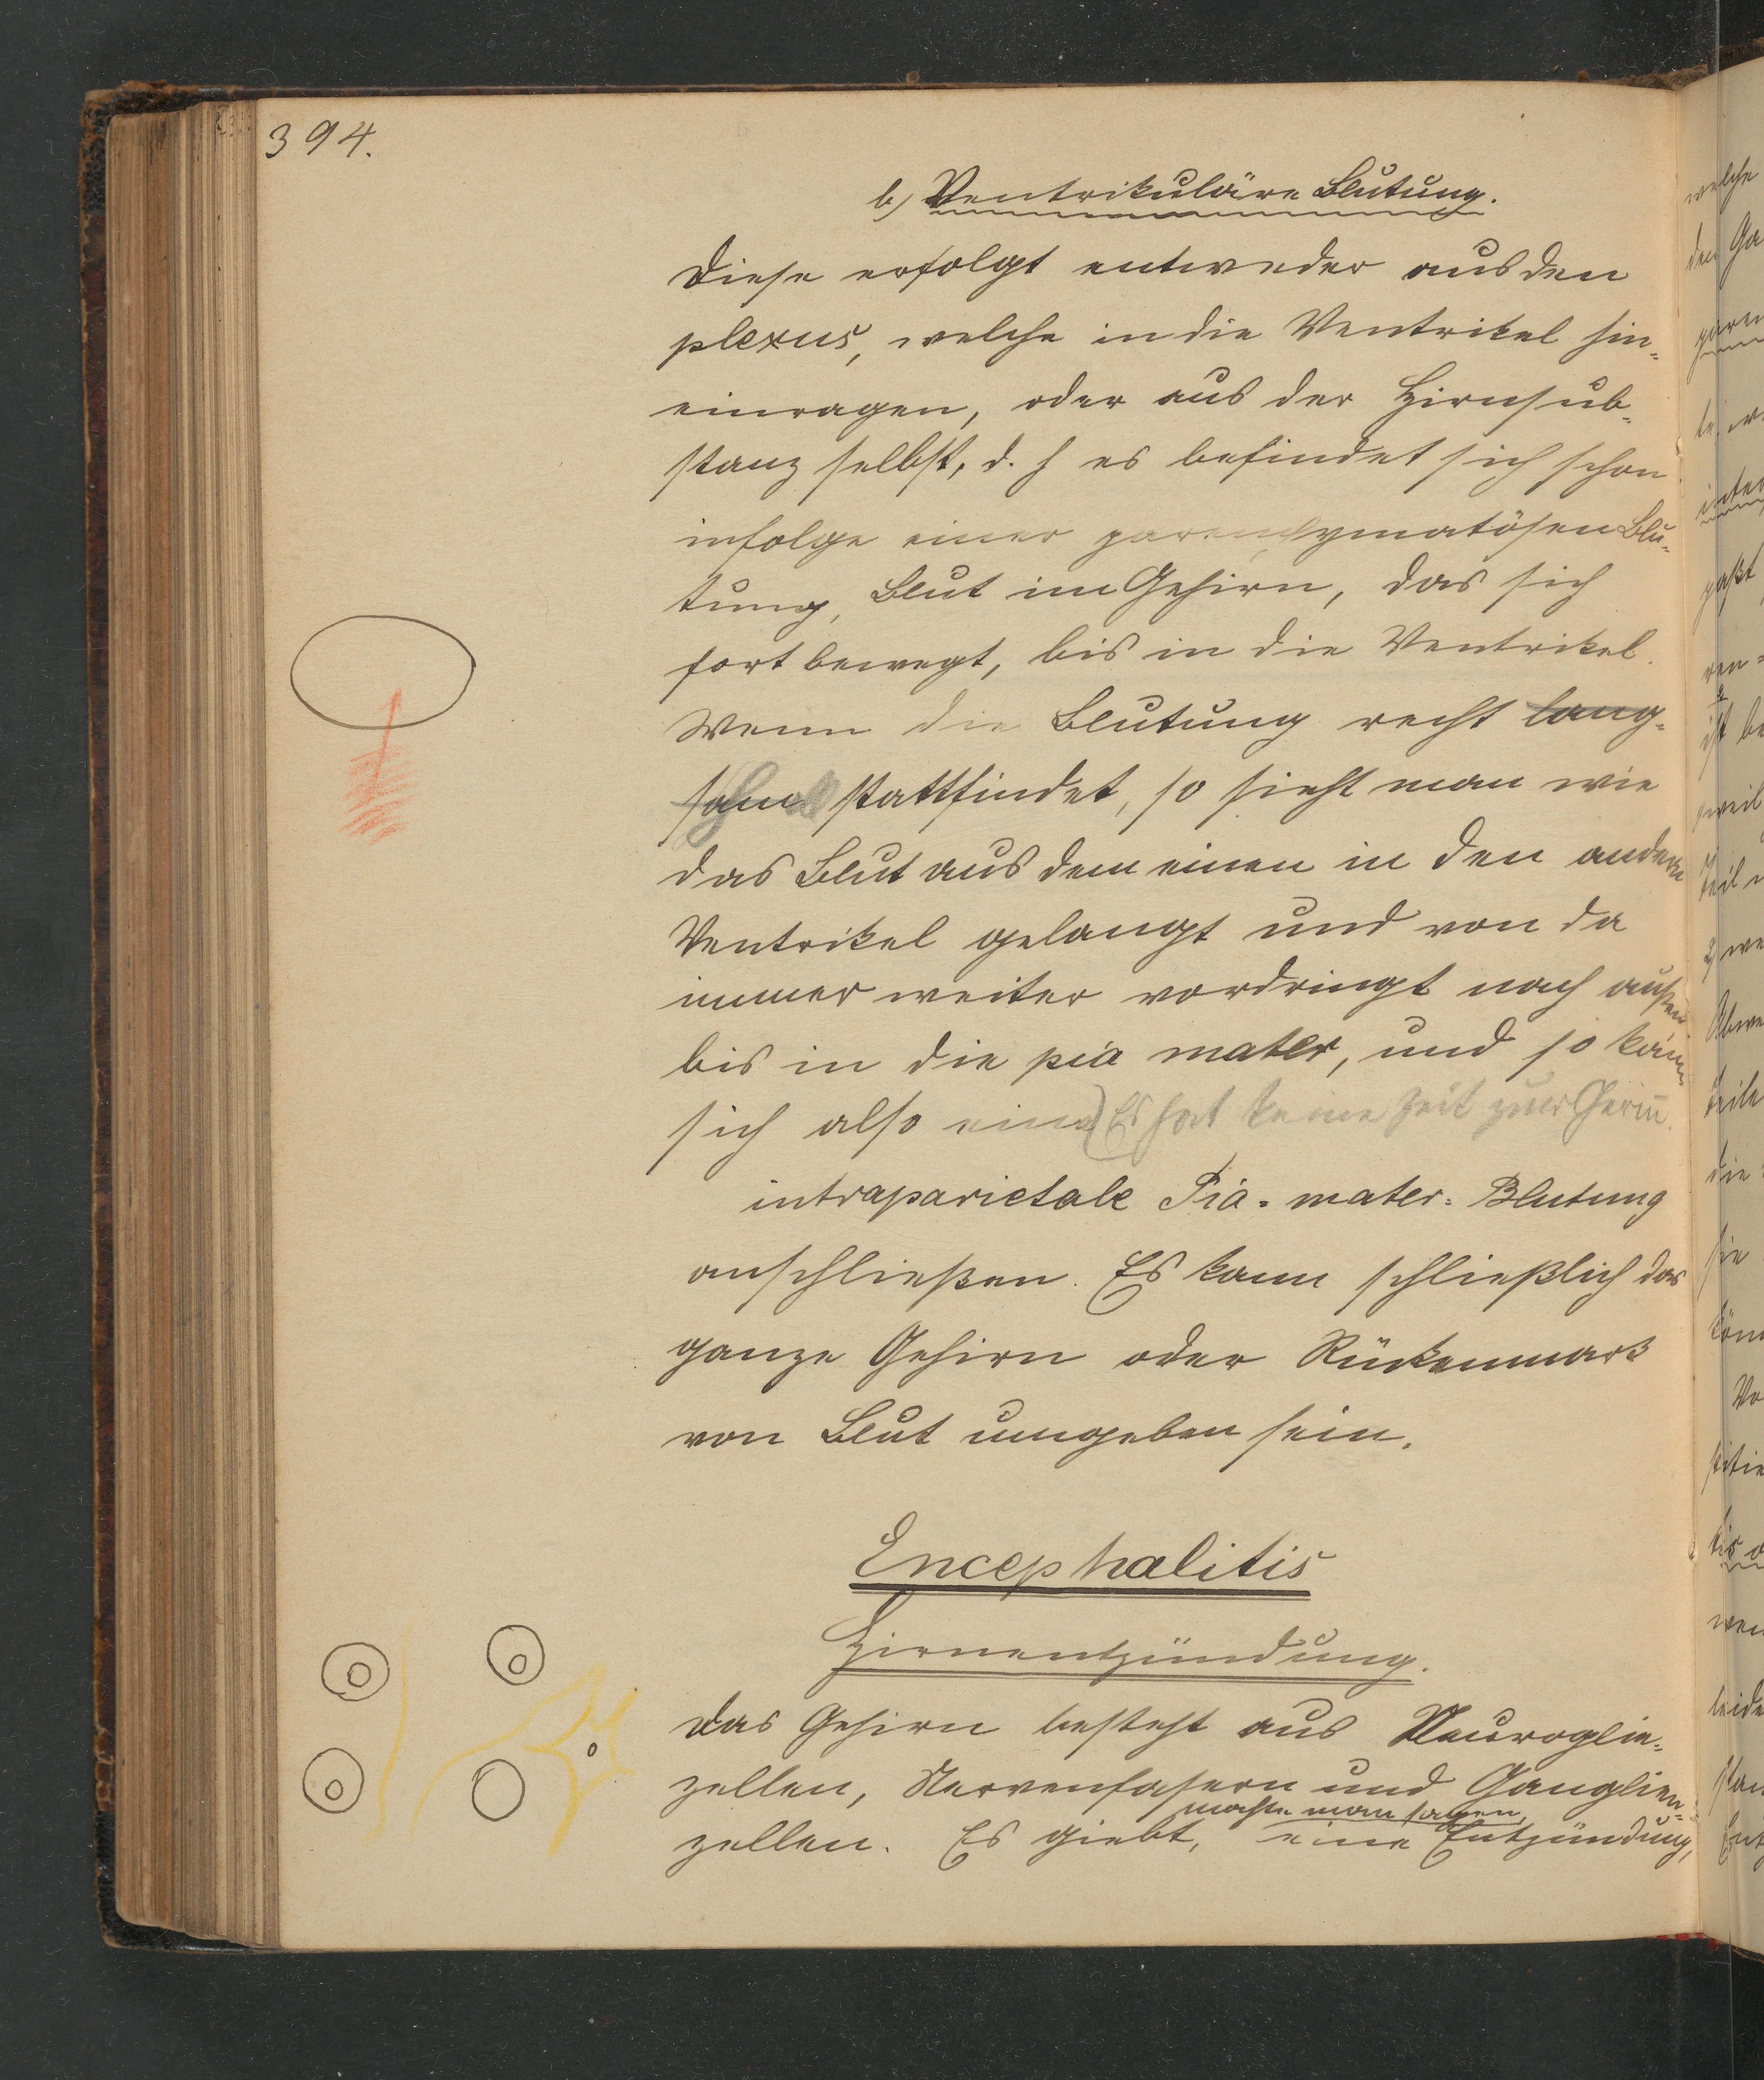 394.
b) Ventrikuläre Blutung.
Diese erfolgt entweder aus den
plexus, welche in die Ventrikel hin-
einragen, oder aus der Hirnsub-
stanz selbst, d. h es befindet sich schon
infolge einer parenchymatösen Blu-
tung, Blut im Gehirn, das sich
fortbewegt, bis in die Ventrikel.
Wenn die Blutung recht lang-
sam stattfindet, so sieht man wie
das Blut aus dem einen in den andern
Ventrikel gelangt und von da
immer weiter vordringt nach außen
bis in die pia mater, und so kann
sich also eine (Es hat keine Zeit zur Gerin.
intraparietale Pia-mater-Blutung
anschließen. Es kann schließlich das
ganze Gehirn oder Rückenmark
von Blut umgeben sein.
Encephalitis
Hirnentzündung.
Das Gehirn besteht aus Neuroglia-
zellen, Nervenfasern und Ganglien-
möchte man sagen,
zellen. Es giebt, eine Entzündung,